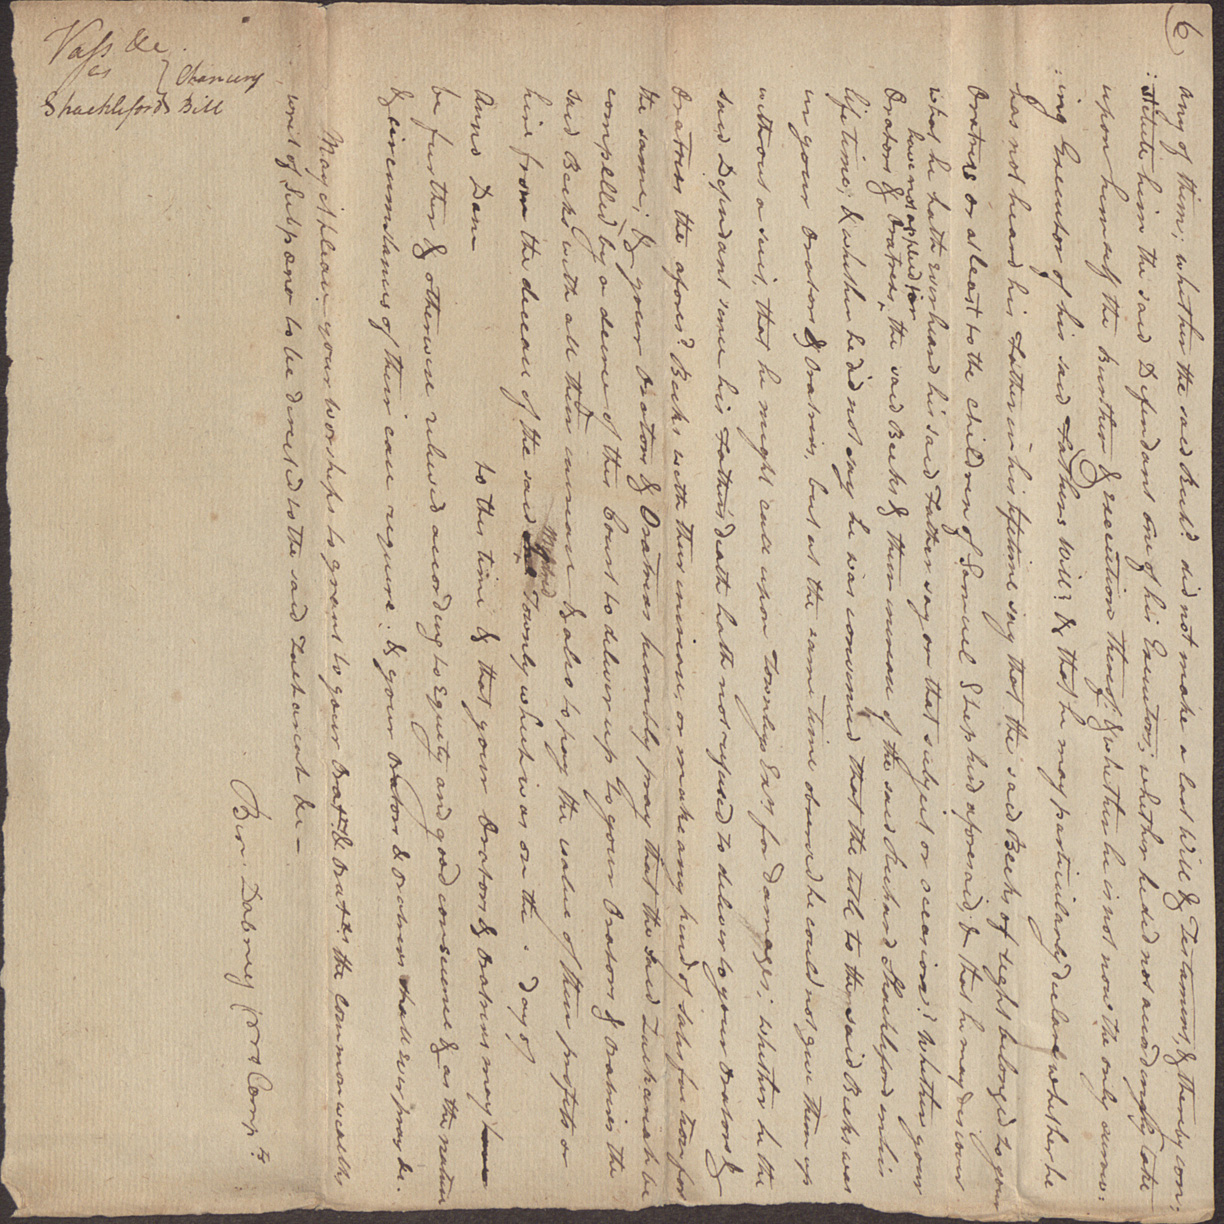 6
any of them; whether the said Rich.d did not make a last Will & Testament, & thereby con:
:stitute him the said Defendant one of his Executors; whether he did not accordingly take
upon himself the burthen & execution thereof & whether he is not now the only surviv:
:ing Executor of his said Fathers Will? & that he may particularly declare whether he
has not heard his Father in his lifetime say that the said Becks of right belonged to your
Oratrix or at least to the children of Samuel Shepherd aforesaid, & that he may discover
what he hath ever heard his said Father say on that subject or occasion? Whether your
have not applied for
Orators & Oratrixes, the said Becks & their increase of the said Richard Shackleford in his
lifetime; & whether he did not say he was convinced that the title to the said Becks was
in your Orators & Oratrixes, but at the same time observed he could not give them up
without a suit, that he might call upon Townleys Exrs. for damages; whether he the
said Defendant since his Father's death hath not refused to deliver to your Orators &
Oratrixes the afores.d Becks with their increase, or make any kind of satisfaction for
the same; & your Orators & Oratrixes humbly pray that the said Zachariah be
compelled by a decree of this Court to deliver up to your Orators & Oratrixes the
said Becks with all their increase & also to pay the value of their profits or
hire from the decease of the said Townly which was on the day of
Anno Dom to this time & that your Orators & Oratrixes may
be further & otherwise relieved according to equity and good conscience & as the nature
& circumstances of their case require: & your Orators & Oratrixes shall ever pray &c.
May it please your worships to grant to your Orat.rs & Orat.xs the commonwealth
writ of Subpœna to be directed to the said Zachariah &c —
Ben Dabney for Comp.ts
Vass &c.
vs } Chancery
Shacklefords Bill